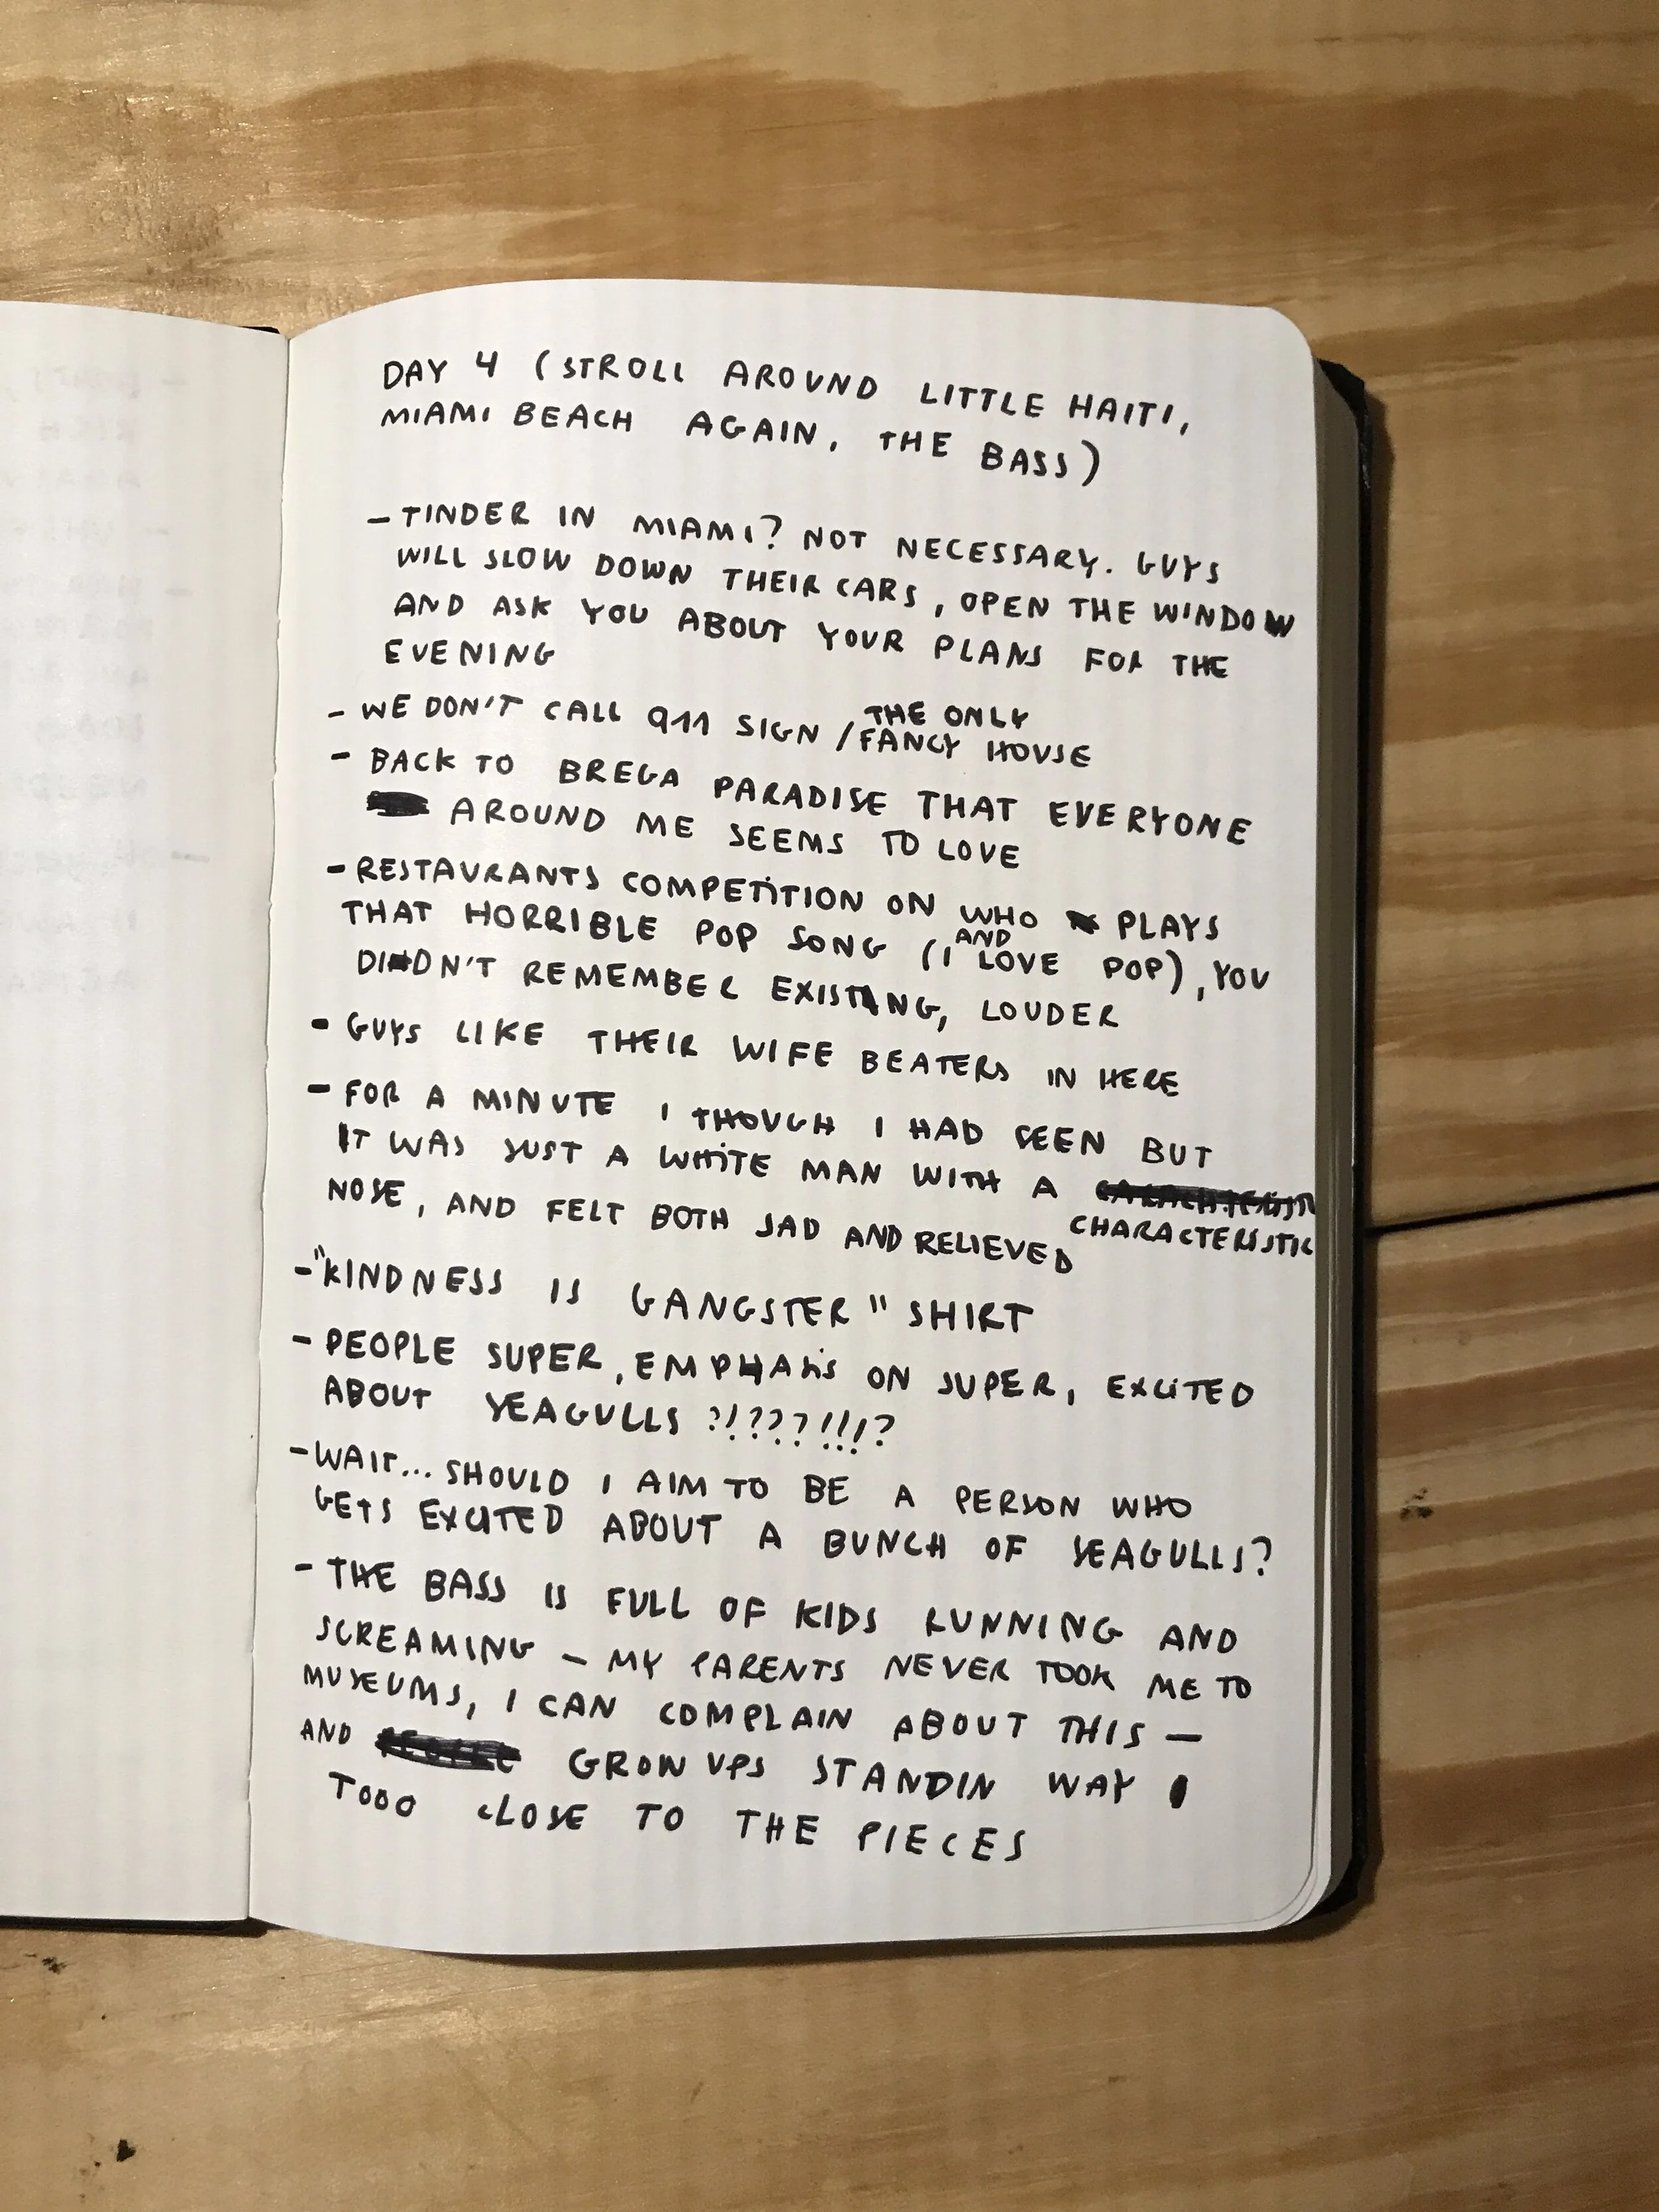 DAY 4 (STROLL AROUND LITTLE HAITI,
MIAMI BEACH AGAIN, THE BASS)
- TINDER IN MIAMI? NOT NECESSARY. GUYS
WILL SLOW DOWN THEIR CARS, OPEN THE WINDOW
AND ASK YOU ABOUT YOUR PLANS FOR THE
EVENING
- WE DON'T CALL 911 SIGN / THE ONLY
FANCY HOUSE
- BACK TO BREGA PARADISE THAT EVERYONE
AROUND ME SEEMS TO LOVE
- RESTAURANTS COMPETITION ON WHO PLAYS
THAT HORRIBLE POP SONG (AND I LOVE POP), YOU
DIDN'T REMEMBER EXISTING, LOUDER
- GUYS LIKE THEIR WIFE BEATERS IN HERE
- FOR A MINUTE I THOUGH I HAD SEEN BUT
IT WAS JUST A WHITE MAN WITH A
CHARACTERISTIC
NOSE, AND FELT BOTH SAD AND RELIEVED
- "KINDNESS IS GANGSTER" SHIRT
- PEOPLE SUPER, EMPHASIS ON SUPER, EXCITED
ABOUT SEAGULLS ?!???!!!?
- WAIT... SHOULD I AIM TO BE A PERSON WHO
GETS EXCITED ABOUT A BUNCH OF SEAGULLS?
- THE BASS IS FULL OF KIDS RUNNING AND
SCREAMING – MY PARENTS NEVER TOOK ME TO
MUSEUMS, I CAN COMPLAIN ABOUT THIS –
AND GROWN UPS STANDIN WAY
TOOO CLOSE TO THE PIECES